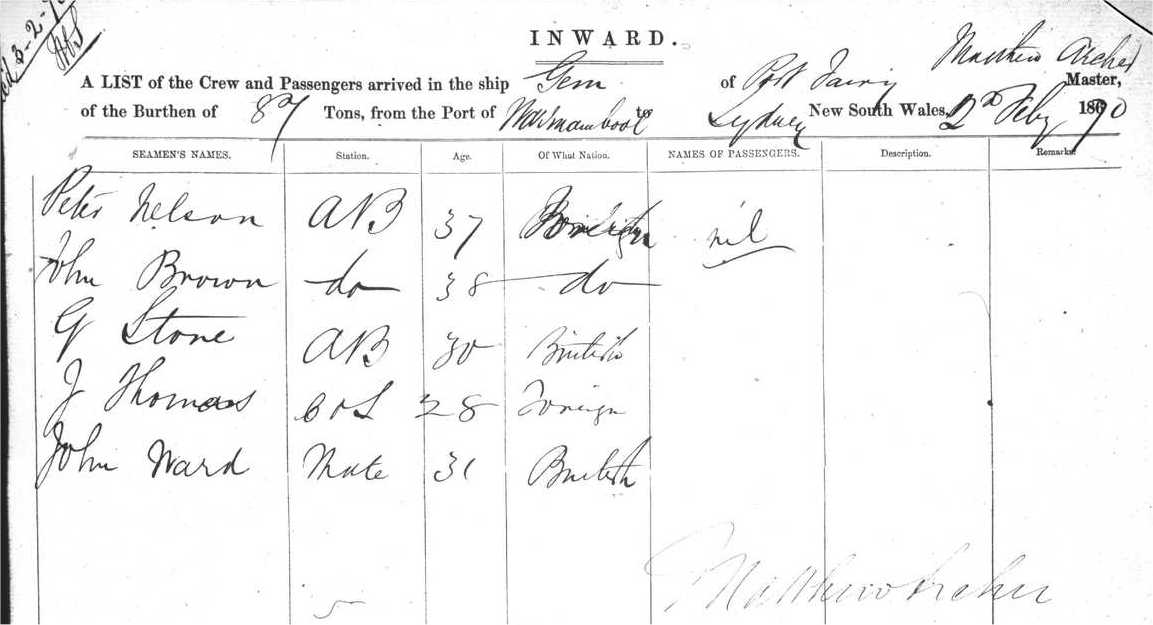 3-2-7
INWARD.
Matthew Archer
A LIST of the Crew and Passengers arrived in the ship Gem of Port Fairy Master,
of the Burthen of 87 Tons, from the Port of Warrnambool to Sydney New South Wales, 2nd Feby 1870
SEAMEN'S NAMES. Station. Age. Of What Nation. NAMES OF PASSENGERS. Description. Remarks
Peter Nelson AB 37 Foreign nil
John Brown do 38 do
G Stone AB 30 British
J Thomas 28 Foreign
John Ward Mate 31 British
5
Matthew Archer